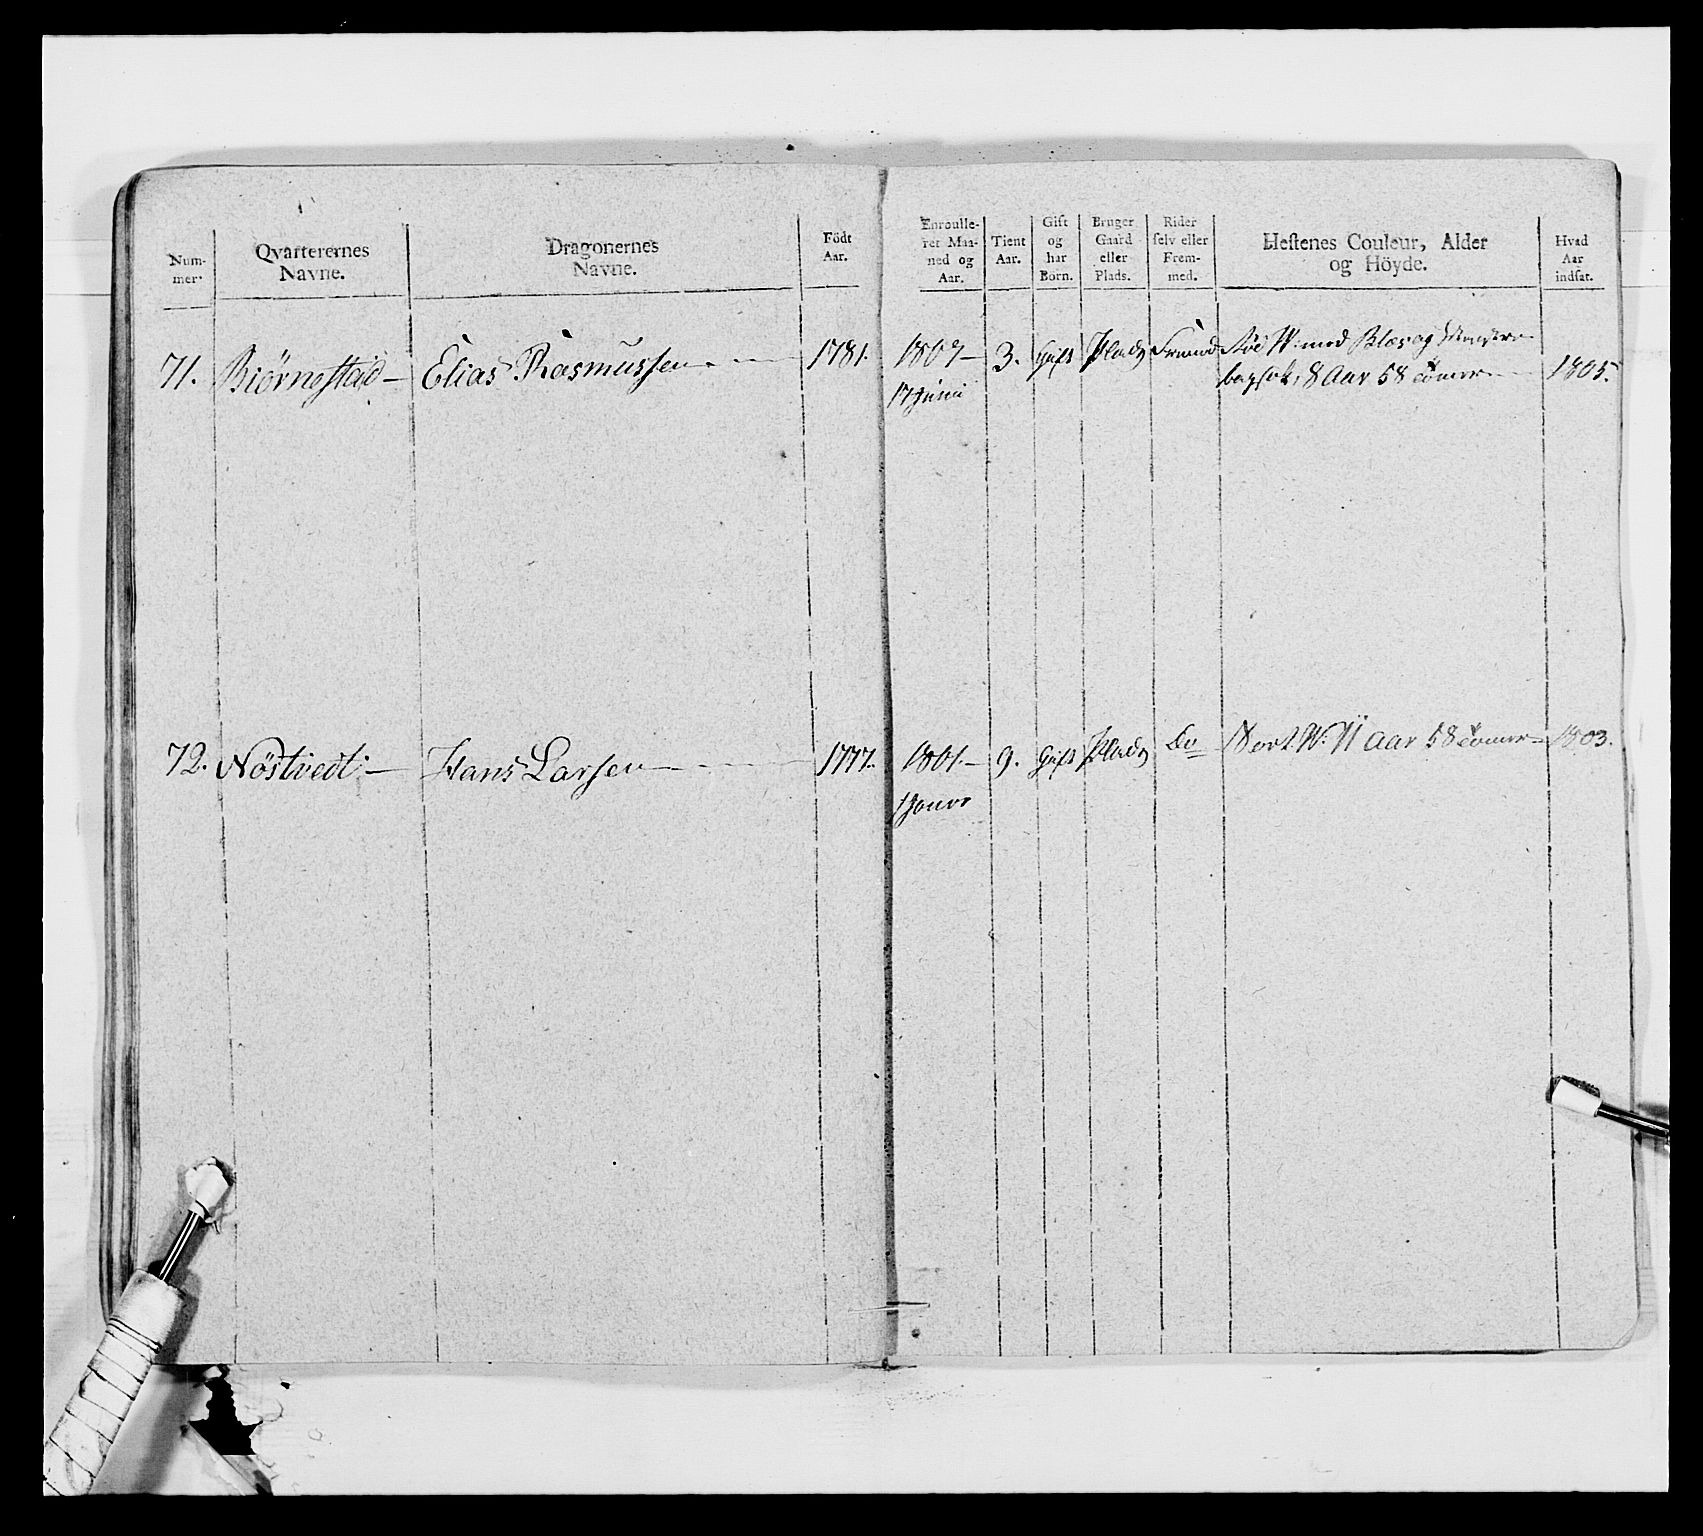 Num-
mer.
Qvarterernes
Navne.
Dragonernes
Navne.
Födt
Aar.
Enroulle-
ret Maa-
ned og
Aar.
Tient
Aar.
Gift
og
har
Börn.
Bruger
Gaard
eller
Plads.
Rider
selv eller
Frem-
med.
Hestenes Couleur, Alder
og Höyde.
Hvad
Aar
indsat.
71. Biörnestad — Elias Rasmussen 1781. 1807 — 3. Gift Plads Fremd med Blæs og venstre
17 Juni 8 Aar 58 1805.
72. Nöstvedt — Hans Larsen 1777. 1801. — 9. Gift Plads Do Sort. W. 11 Aar 58 1803.
1 Janv